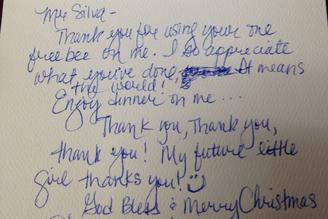 Mr. Silva-
Thank you for using your one
freebee on me. I do appreciate
what you've done, It means
the world!
Enjoy dinner on me...
Thank you, Thank you,
thank you! My future little
girl thanks you!
God Bless & Merry Christmas